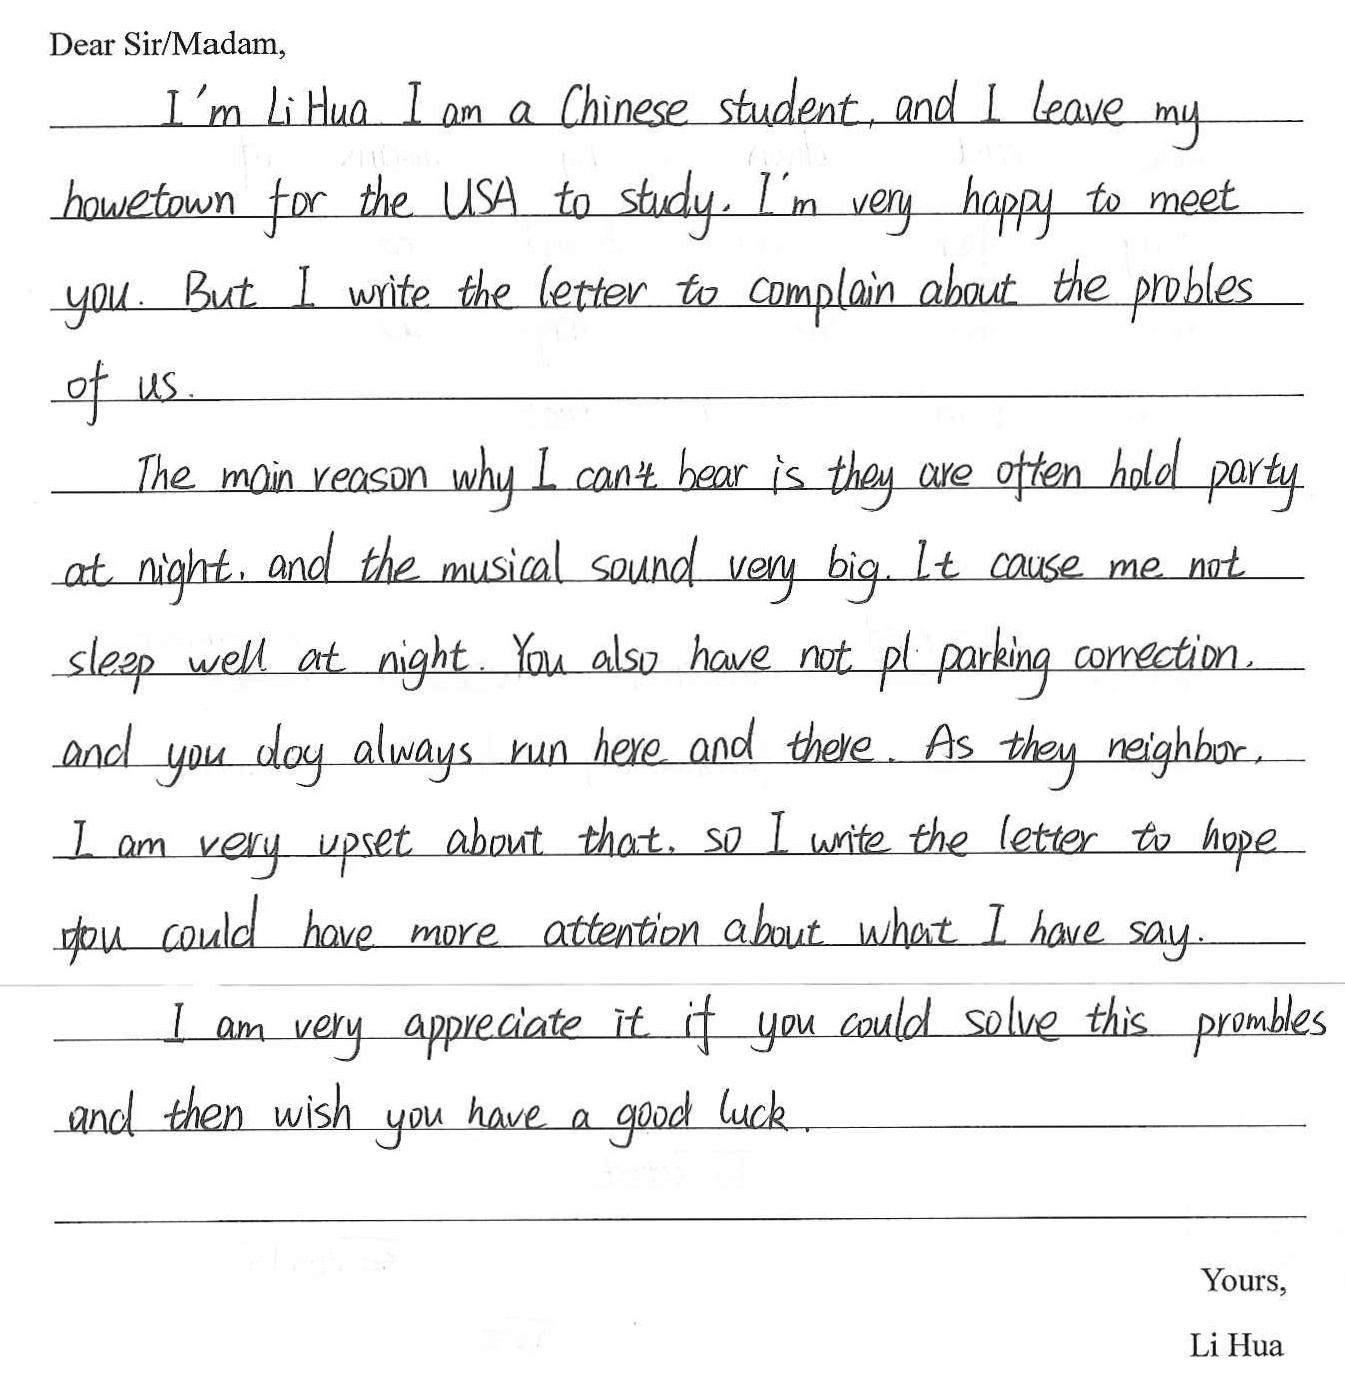 Dear Sir/Madam,
I'm Li Hua I am a Chinese student, and I leave my
howetown for the USA to study. I'm very happy to meet
you. But I write the letter to complain about the probles
of us.
The main reason why I can't bear is they are often hold party
at night, and the musical sound very big. It cause me not
sleep well at night. You also have not pl parking correction.
and you dog always run here and there. As they neighbor,
I am very upset about that. so I write the letter to hope
you could have more attention about what I have say.
I am very appreciate it if you could solve this prombles
and then wish you have a good luck.
Yours,
Li Hua